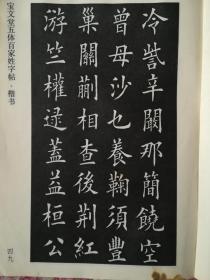 冷訾辛闞那簡饒空
曾母沙乜養鞠須豐
巢關蒯相查後荊紅
游竺權逯蓋益桓公
宝文堂五体百家姓字帖·楷书
四九